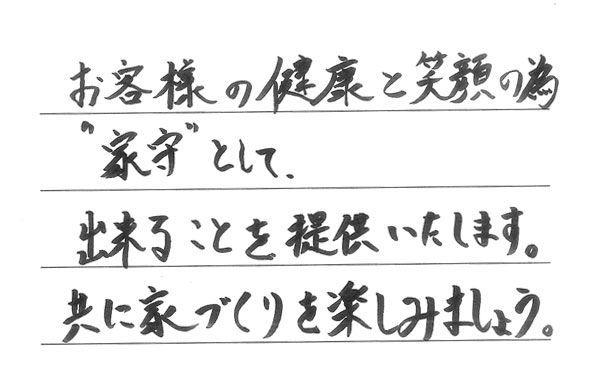 お客様の健康と笑顔の為
"家守"として、
出来ることを提供いたします。
共に家づくりを楽しみましょう。